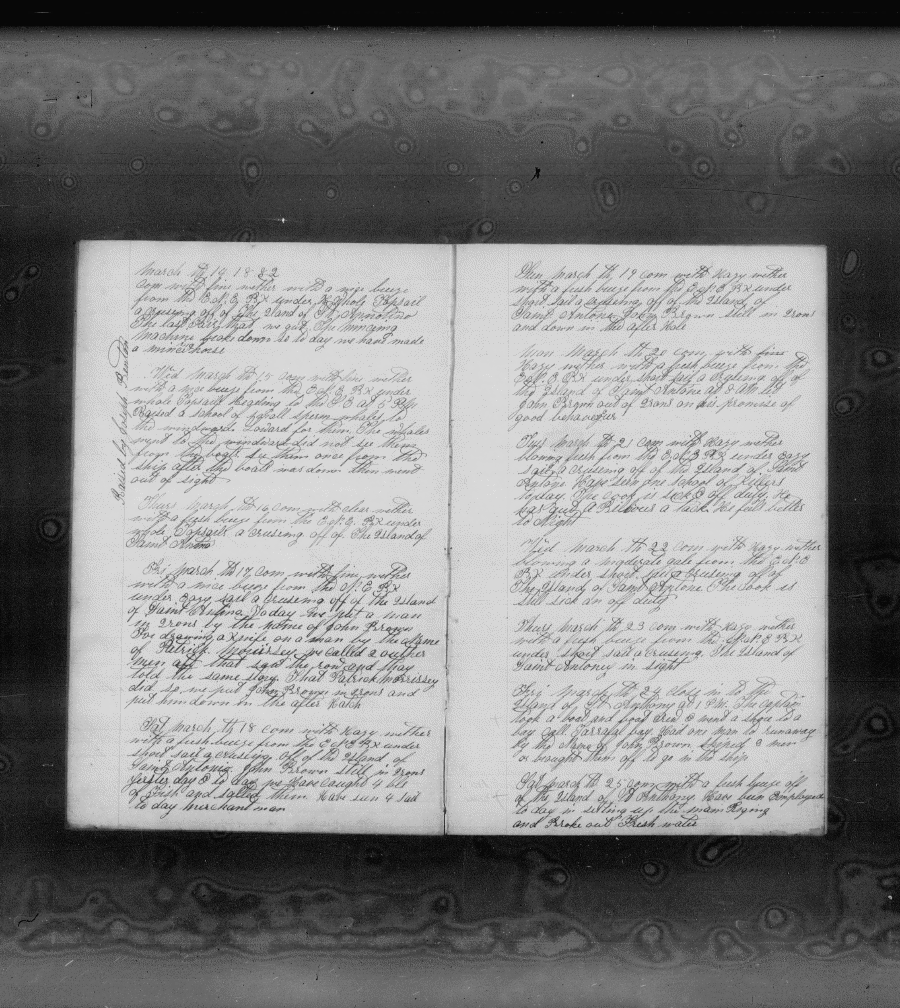 March th 14 1882
Com with fine wether with a nice breeze
from the E.N.E. Bx under whole Topsail
a cruseing off of the Island of St
The last that we got The mincing
Machane broke down so to day we have made
a mince horse
Wed March th 15 Com with fine wether
with a nice breeze from the E.N.E. Bx under
whole Topsail the S.E. at 5 PM
Raised a school of Sperm whales to
the windward Loard for them The whales
went to the windward did not see them
from the boats see them once from the
ship after the boats was down then went
out of sight
Raised by Joseph
Thurs March th 16 Com with clear wether
with a fresh breeze from the E.N.E. Bx under
whole Topsails a cruseing off of The Island of
Saint
Fri March th 17 Com with fine wether
with a nice breeze from the N.E. Bx
under eazy sail a cruseing off of the Island
of Saint To day we put a man
in Irons by the name of John Brown
For drawing a knife on a man by the Name
of Patrick Morrissey we called 2 outher
men aft that saw the row and thay
told the same story That Patrick Morrissey
did so we put John Brown in Irons and
put him down in the after hatch
Sat March th 18 Com with Hazy wether
with a fresh breeze from the E.N.E Bx under
short sail a cruseing off of the Island of
Saint Antonio John Brown still in Irons
day & to day we Have Caught 4 bbl
of Fish and salted them Have seen 4 sail
to day merchant man
March th 19 Com with Hazy wether
with a fresh breeze from the E.N.E. Bx under
short sail a cruseing off of the Island of
Saint Antonio John Brown still in Irons
and down in the after Hole
Mon March th 20 Com with fine
Hazy wether with a fresh breeze from the
E.N.E. Bx under short sail a cruseing off of
the Island of Saint Antone at 8 AM let
John Brown out of Irons on his promise of
good behaveyer
Tues March th 21 Com with Hazy wether
blowing fresh from the E.N.E. Bx under eazy
sail a cruseing off of the Island of Saint
Antone Have seen one school of Killers
today The Cook is sick & off duty He
Has got a back He feels better
to Night
Wed March th 22 Com with Hazy wether
blowing a moderate gale from the E.N.E
Bx under short sail a cruseing off of
The Island of Saint Antone The Cook is
still sick an off duty
Thurs March th 23 Com with Hazy wether
with a fresh breeze from the E.N.E Bx
under short sail a cruseing The Island of
Saint Antoney in sight
Fri March th 24 close in to the
Island of St Anthony at 1 P.M. The Captain
took a boat and good Crew & went a shore to a
bay Call Tarrafal bay Had one man to runaway
by the Name of John Brown Shiped 3 men
or brought them off to go in the ship
Sat March th 25 Com with a fresh breeze off
of the Island of St Anthony Have been Employed
to day in setting up the main Riging
and Broke out Fresh water